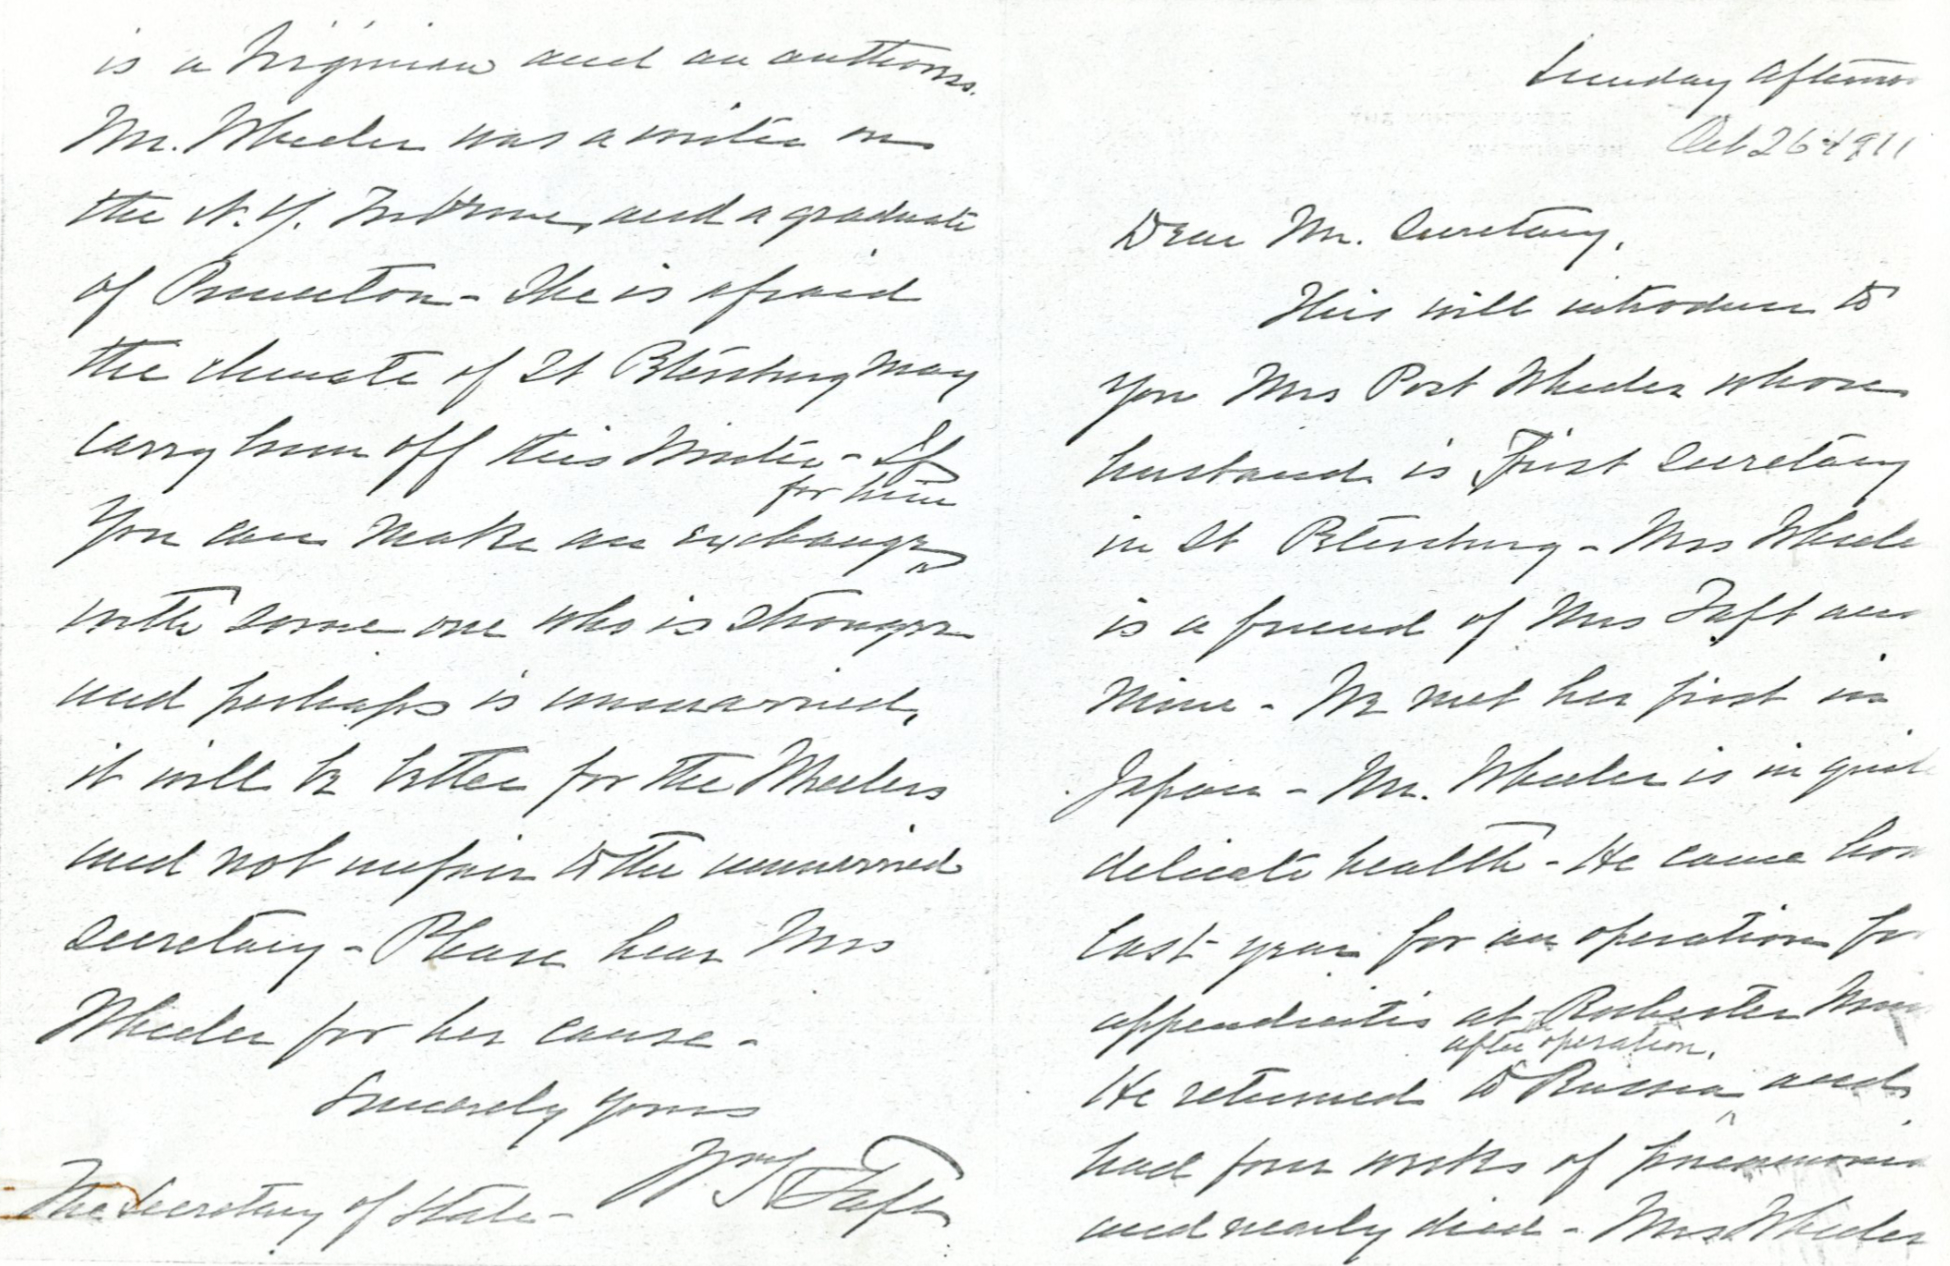 Sunday afternoo
Oct 26 1911
Dear Mr. Secretary,
This will introduce to
you Mrs Post Wheeler whose
husband is First Secretary
in St Petersburg - Mrs Wheele
is a friend of Mrs Taft and
mine - We met her first in
Japan - Mr. Wheeler is in quite
delicate health - He came hom
last year for an operation for
appendicitis at Rochester Minn
after operation,
He returned to Russia and
had four weeks of pneumonia
and nearly died - Mrs Wheeler
is a Virginian and an authoress.
Mr. Wheeler was a writer on
the N.Y. Tribune, and a graduate
of Princeton - She is afraid
the climate of St Petersburg may
carry him off this Winter - If
for him
You can make an exchange
with some one who is stronger
and perhaps is unmarried,
it will be better for the Wheelers
and not unfair to the unmarried
secretary - Please hear Mrs
Wheeler for her cause -
Sincerely yours
Wm H Taft
The Secretary of State -